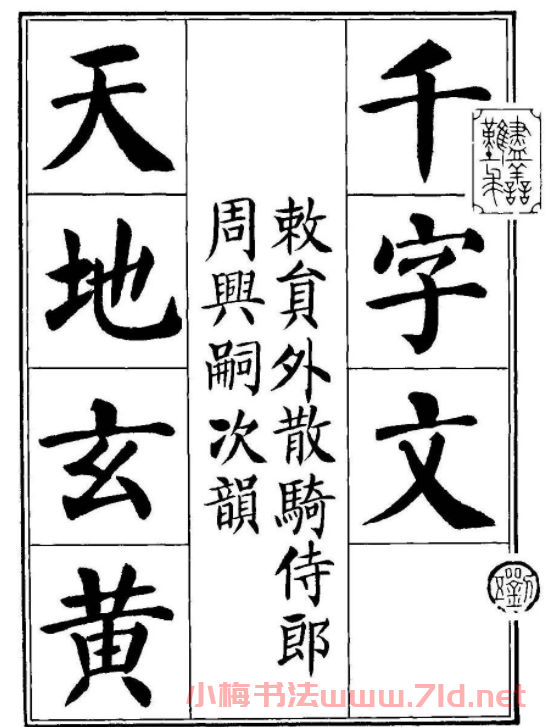 千字文
敕員外散騎侍郎
周興嗣次韻
天地玄黄
小梅书法www.7ld.net